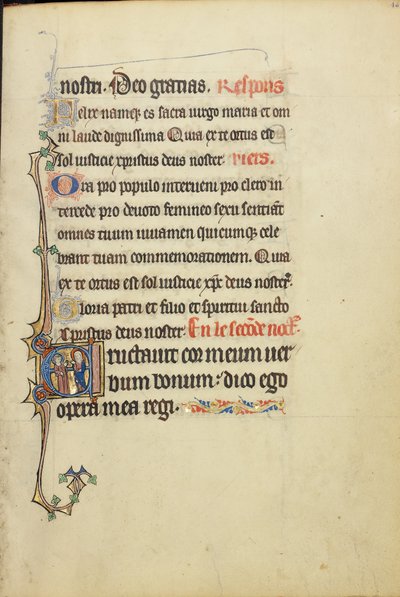 nostri. Deo gratias. Respons
Felix namqꝫ es sacra uirgo maria et om
ni laude dignissima Quia ex te ortus est
sol iusticie xpistus deus noster. Viers.
Ora pro populo interueni pro clero in
tercede pro deuoto femineo sexu sentiāt
omnes tuum iuuamen quicumqꝫ cele
brant tuam commemorationem. Quia
ex te ortus est sol iusticie xp̄c deus noster.
Gloria patri et filio et spiritui sancto
Xpistus deus noster. En le seconde noct.
Eructauit cor meum uer
bum bonum: dico ego
opera mea regi.